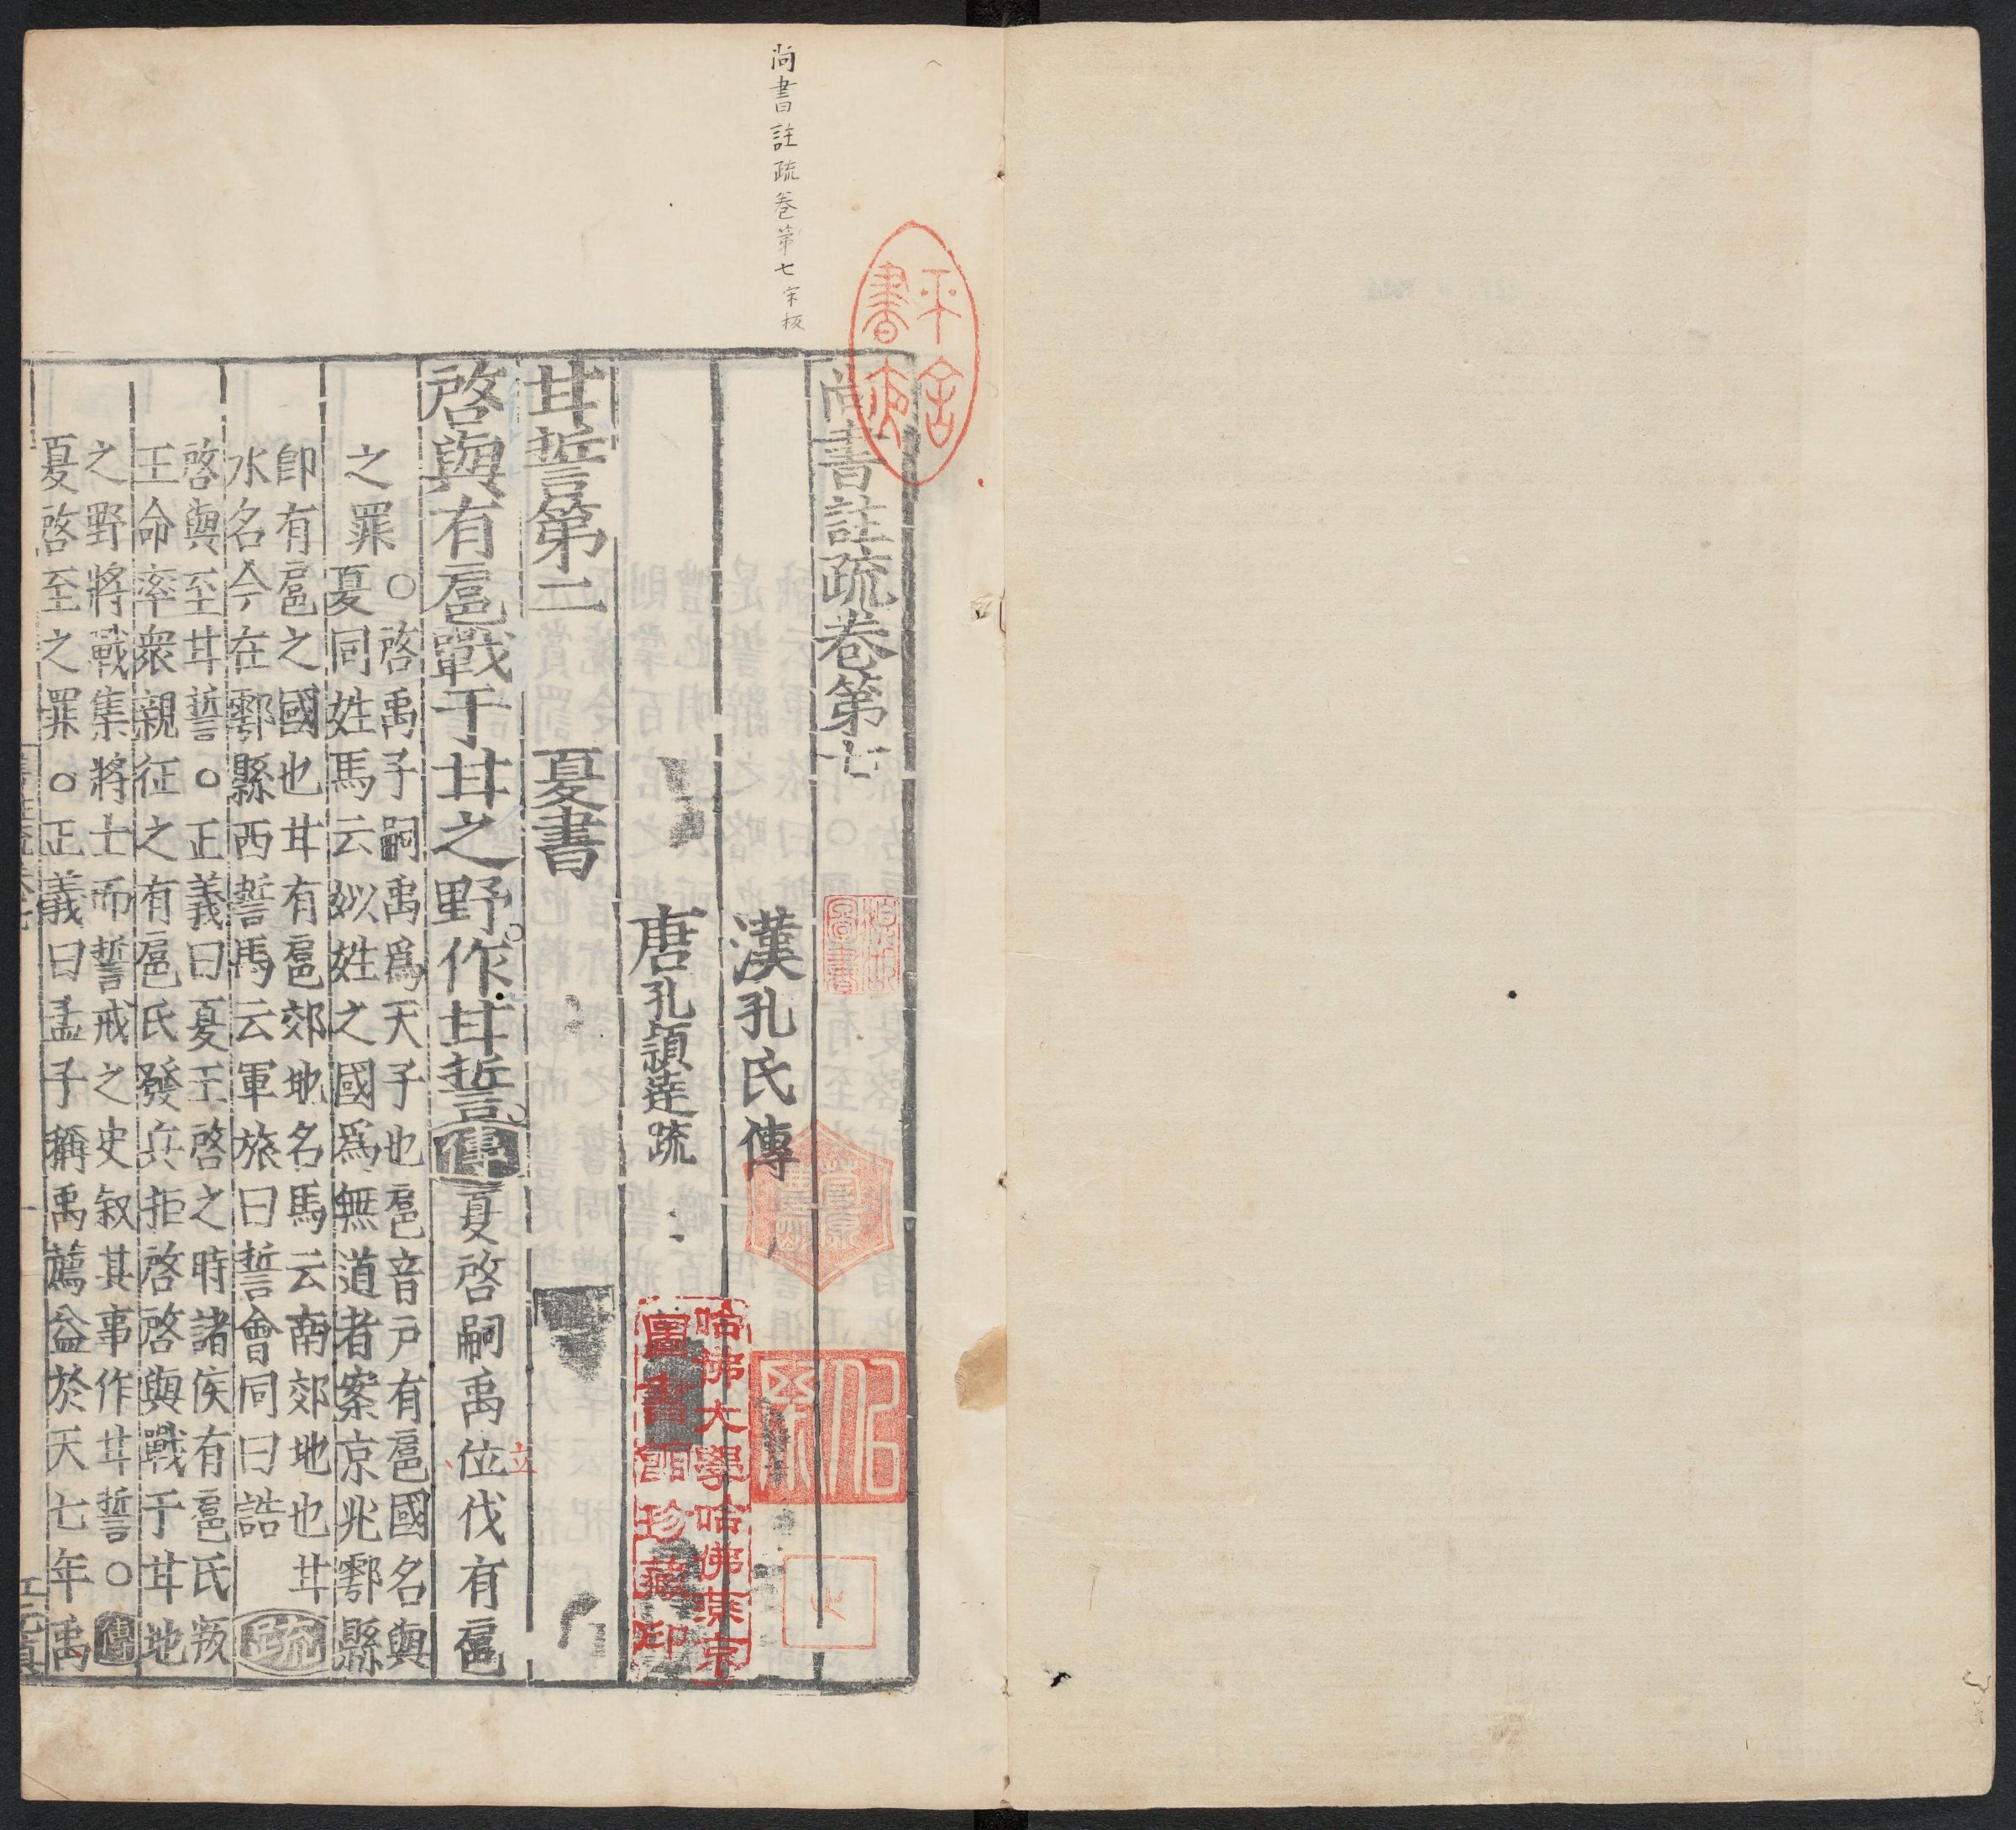 尚書註疏卷第七宋板
尚書註疏卷第七
漢孔氏傳
唐孔穎達疏
甘誓第二 夏書
啓與有扈戰于甘之野作甘誓傳夏啓嗣禹位伐有扈
立
之罪○啓禹子嗣禹爲天子也扈音戸有扈國名與
夏同姓馬云姒姓之國爲無道者案京兆鄠縣
即有扈之國也甘有扈郊地名馬云南郊地也甘
水名今在鄠縣西誓馬云軍旅曰誓會同曰誥 疏
啓與至甘誓○正義曰夏王啓之時諸侯有扈氏叛
王命率衆親征之有扈氏發兵拒啓啓與戰于甘地
之野將戰集將士而誓戒之史叙其事作甘誓○傳
夏啓至之罪○正義曰孟子稱禹薦益於天七年禹
哈佛大學哈佛燕京
圖書館珍藏印